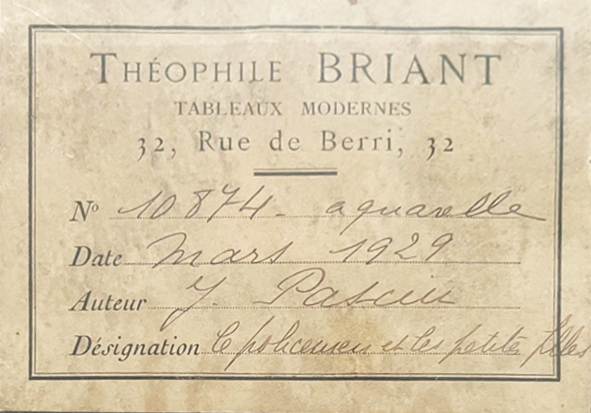 THÉOPHILE BRIANT
TABLEAUX MODERNES
32, Rue de Berri, 32
Nº 10874 - aquarelle
Date mars 1929
Auteur J. Pascin
Désignation le policemen et les petites filles